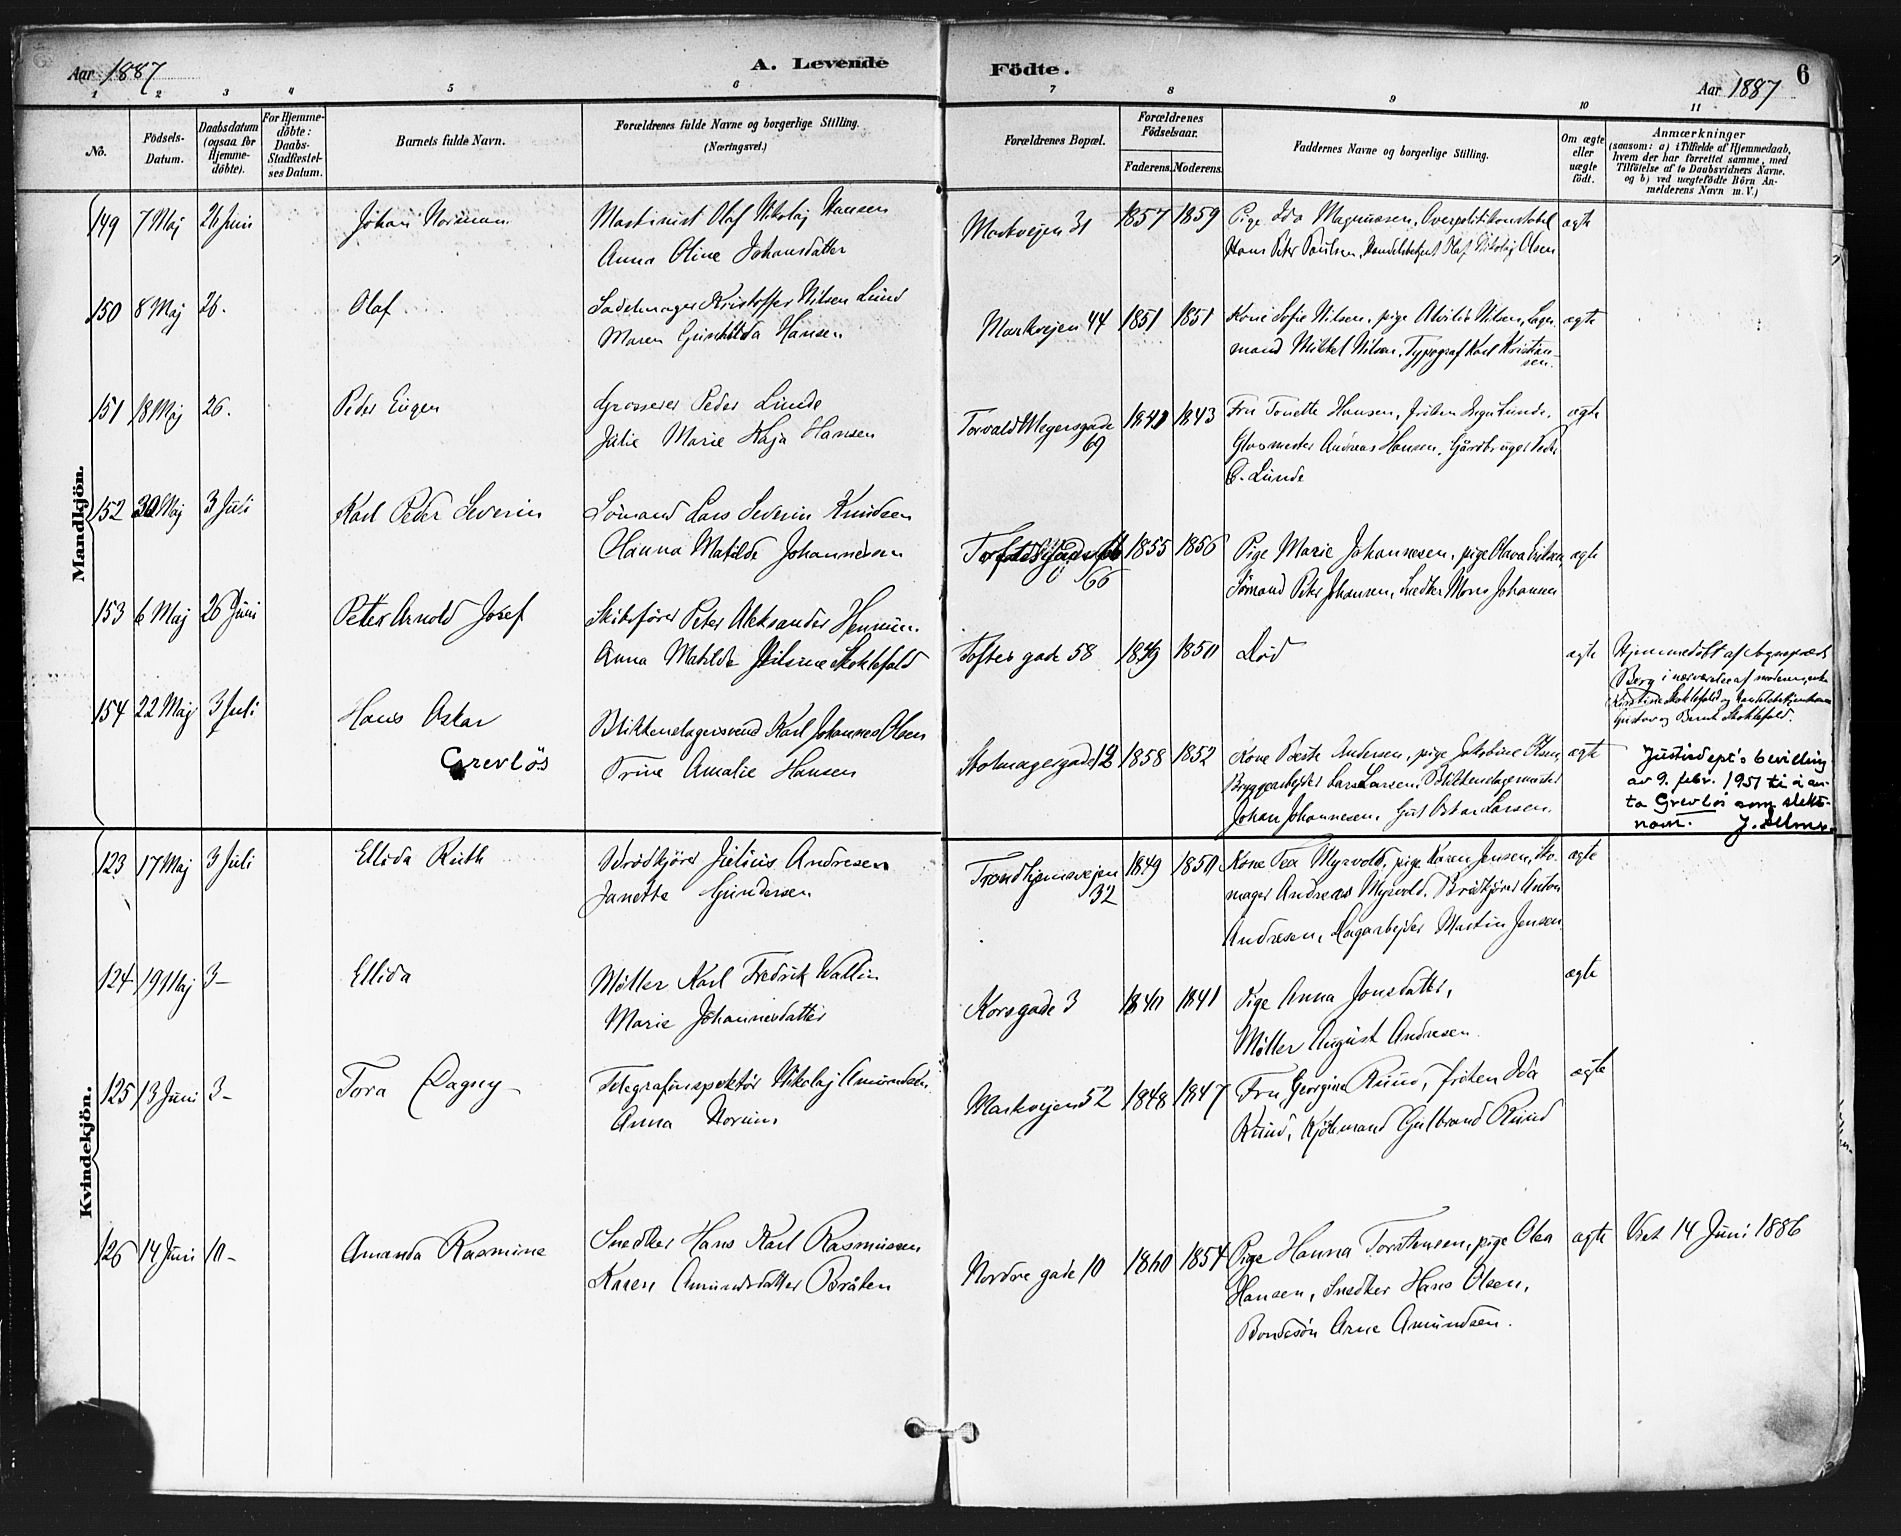 Aar 1887
A. Levende
Födte.
Aar 1887
6
1 2 3 4 5 6 7 8 9 10 11
No.
Födsels-
Datum.
Daabsdatum
(ogsaa for
Hjemme-
döbte).
For Hjemme-
döbte:
Daabs-
Stadfestel-
ses Datum.
Barnets fulde Navn.
Forældrenes fulde Navne og borgerlige Stilling.
(Næringsvei.)
Forældrenes Bopæl.
Forældrenes
Födselsaar.
Faderens. Moderens.
Faddernes Navne og borgerlige Stilling.
Om ægte
eller
uægte
födt.
Anmærkninger
(saasom: a) i Tilfælde af Hjemmedaab,
hvem der har forrettet samme, med
Tilföielse af to Daabsvidners Navne.
og b) ved uægtefödte Börn An-
melderens Navn m. V.)
Mandkjön.
149 7 Maj 26 Juni Johan Norman
Maskinist Olaf Nikolaj Hansen
Anna Oline Johansdatter
Markvejen 31 1857 1859
Pige Ida Magnussen, Overpolitikonstabel
Hans Peter Paulsen, Handelsbetjent Olaf Nikolaj Olsen
ægte
150 8 Maj 26. Olaf
Sadelmager Kristoffer Nilsen Lund
Maren Gunhilda Hansen
Markvejen 44 1851 1851
Kone Sofie Nilsen, pige Alvilde Nilsen, Lager
mand Mikkel Nilsen, Typograf Karl Kristian-
sen.
ægte
151 18 Maj 26. Peder Eugen
Grosserer Peder Lunde
Julie Marie Kaja Hansen
Torvald Meyersgade
69
1841 1843
Fru Tonette Hansen, fröken Inga Lunde,
Glasmester Andreas Hansen, Gårdbruger Peder
C. Lunde
ægte
152 30 Maj 3 Juli Karl Peder Severin
Sömand Lars Severin Knudsen
Hanna Matilde Johannesen
66
1855 1856
Pige Marie Johannesen, pige Olava Eriksen,
Sömand Peter Johansen, Snedker Mons Johannes
ægte
153 6 Maj 26 Juni Peter Arnold Josef
Skibsförer Peter Aleksander Hennum.
Anna Matilde Skoklefald
Toftes gade 58 1849 1850
Död
ægte
Hjemmedöbt af Sogneprest
Berg i nærværelse af moderen, enke
Kirstine Skoklefald og
Gustav og Bernt Skoklefald.
154 22 Maj 3 Juli Hans Oskar
Grevløs
Blikkenslagersvend Karl Johannes Olsen
Trine Amalie Hansen
Skomagergade 12 1858 1852
Kone Beate Andersen, pige Jakobine Olsen,
Bryggearbejder Lars Larsen, Blikkenslagermester
Johan Johannesen, Gut Oskar Larsen.
ægte
Justisdept's bevilling
av 9. febr. 1951 til å an-
ta Grevløs som slekts-
navn.
Kvindekjön.
123 17 Maj 3 Juli Ellida Ruth
Brödkjörer Julius Andresen
Janette Gundersen
Trondhjemsvejen
32
1849 1850
Kone Tea Myrvold, pige Karen Jensen, Sko-
mager Andreas Myrvold, Brödkjörer Anton
Andresen, Dagarbejder Martin Jensen
ægte
124 19 Maj 3 – Ellida
Møller Karl Fredrik Wallin
Marie Johannesdatter
Korsgade 3 1840 1841
Pige Anna Jonsdatter,
Møller August Andresen
ægte
125 13 Juni 3 – Tora Dagny –
Telegrafinspektör Nikolaj Amundsen
Anna Norum
Markvejen 52 1848 1847
Fru Georgine Ruud, fröken Ida
Ruud, Kjöbmand Gulbrand Ruud
ægte
126 14 Juni 10 – Amanda Rasmine
Snedker Hans Karl Rasmussen
Karen Amundsdatter Bråten
Nordre gade 10 1860 1854
Pige Hanna Torstensen, pige Olea
Hansen, Snedker Hans Olsen,
Bondesön Arne Amundsen.
ægte
Viet 14 Juni 1886